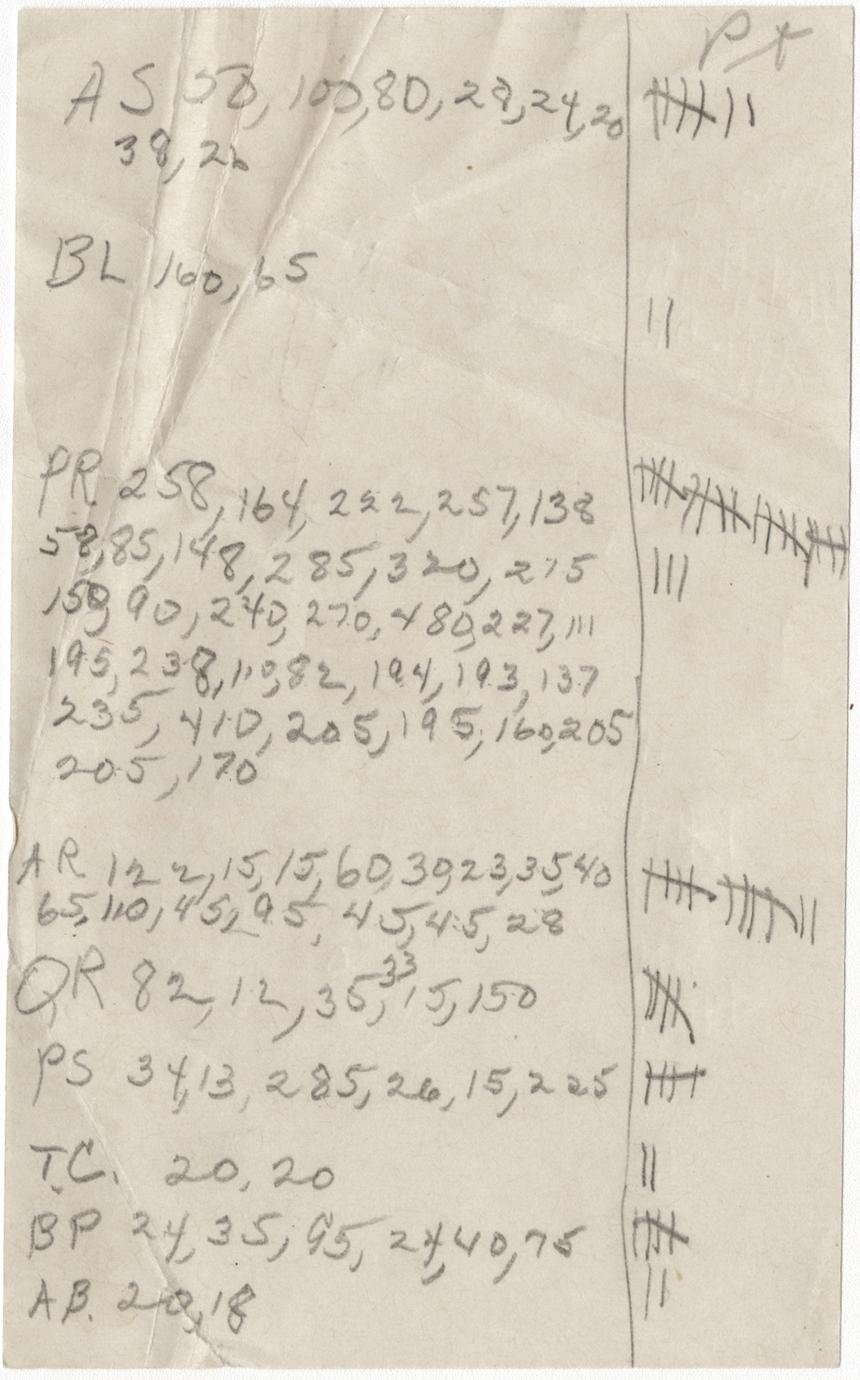 Pt
AS 58, 100, 80, 29, 24, 20
38, 26
BL 160, 65
PR. 258, 164, 222, 257, 138
58, 85, 148, 285, 320, 275
150, 90, 240, 270, 480, 227, 111
195, 238, 110, 82, 194, 193, 137
235, 410, 205, 195, 160, 205
205, 170
AR 122, 15, 15, 60, 30, 23, 35, 40
65, 110, 45, 95, 45, 45, 28
QR 82, 12, 35, 33 15, 150
PS 34, 13, 285, 26, 15, 225
T.C. 20, 20
BP 24, 35, 95, 24, 40, 75
AB. 20, 18